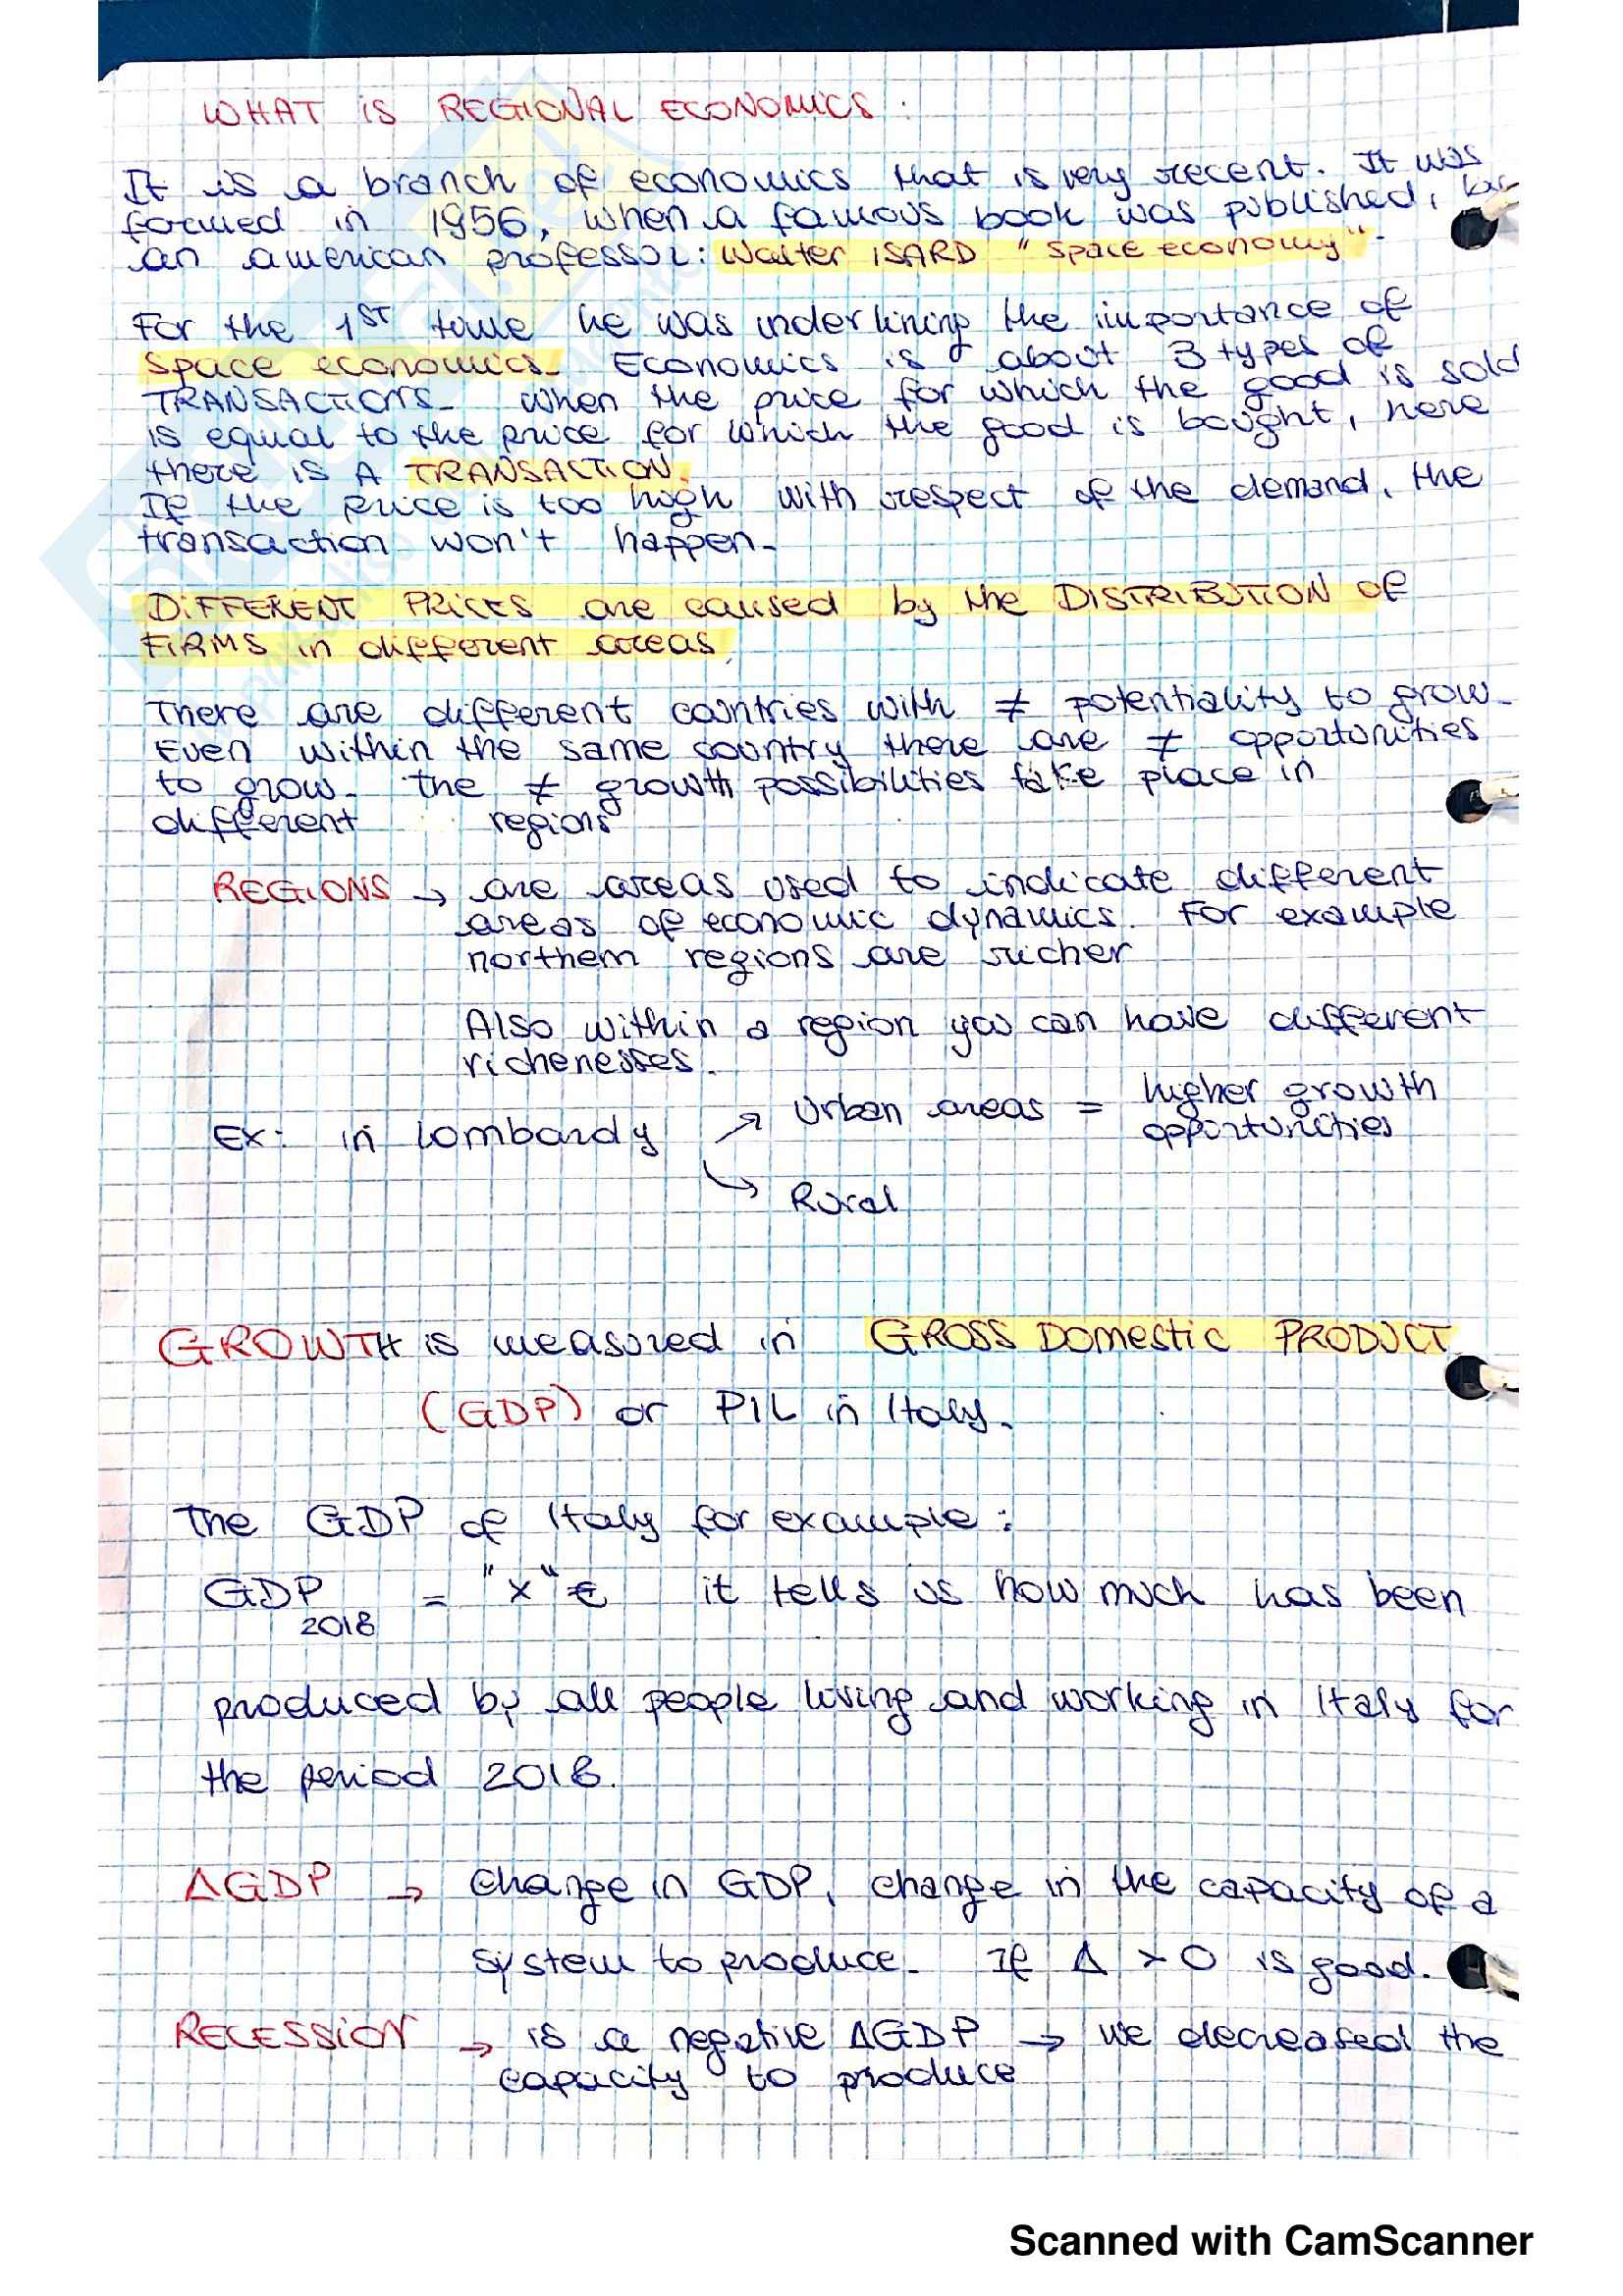 WHAT IS REGIONAL ECONOMICS :
It is a branch of economics that is very recent. It was
formed in 1956, when a famous book was published, by
an american professor: Walter ISARD "Space economy".
For the 1ST time he was underlining the importance of
Space economics. Economics is about 3 types of
TRANSACTIONS. When the price for which the good is sold
is equal to the price for which the good is bought, here
there is A TRANSACTION.
If the price is too high with respect of the demand, the
transaction won't happen.
DIFFERENT PRICES are caused by the DISTRIBUTION OF
FIRMS in different areas.
There are different countries with ≠ potentiality to grow.
Even within the same country there are ≠ opportunities
to grow. The ≠ growth possibilities take place in
different regions
REGIONS → are areas used to indicate different
areas of economic dynamics. For example
northern regions are richer
Also within a region you can have different
richenesses.
Ex: in Lombardy ↗ Urban areas = higher growth
opportunities
↘ Rural
GROWTH is measured in GROSS DOMESTIC PRODUCT
(GDP) or PIL in Italy.
The GDP of Italy for example :
GDP 2018 = "x" € it tells us how much has been
produced by all people living and working in Italy for
the period 2018.
ΔGDP → Change in GDP, change in the capacity of a
system to produce. If Δ > 0 is good.
RECESSION → is a negative ΔGDP → we decreased the
capacity to produce
Scanned with CamScanner